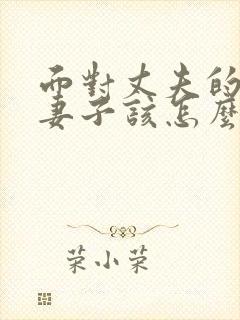 而對丈夫的
妻子該怎麼
荣小荣